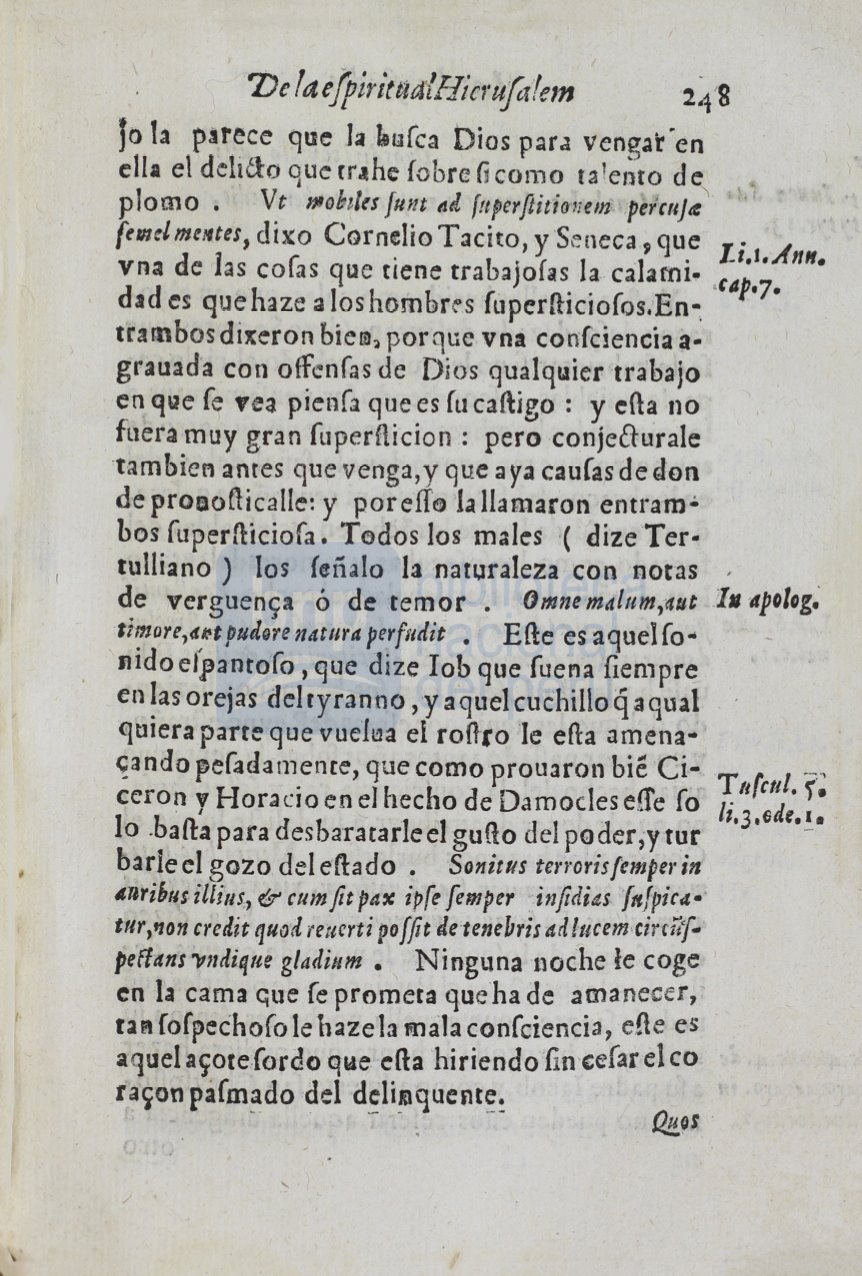 De la eſpiritual Hieruſalem 248
jo la parece que la buſca Dios para vengar en
ella el delicto que trahe ſobre ſi como talento de
plomo . Vt mobiles ſunt ad ſuperſtitionem percuſæ
ſemel mentes, dixo Cornelio Tacito, y Seneca, que
Li.1.Ann.
vna de las coſas que tiene trabajoſas la calami-
cap.7.
dad es que haze a los hombres ſuperſticioſos.En-
trambos dixeron bien, porque vna conſciencia a-
grauada con offenſas de Dios qualquier trabajo
en que ſe vea pienſa que es ſu caſtigo : y eſta no
fuera muy gran ſuperſticion : pero conjecturale
tambien antes que venga, y que aya cauſas de don
de pronoſticalle: y por eſſo la llamaron entram-
bos ſuperſticioſa. Todos los males ( dize Ter-
tulliano ) los ſeñalo la naturaleza con notas
de verguença ó de temor . Omne malum, aut
In apolog.
timore, aut pudore natura perfudit . Eſte es aquel ſo-
nido eſpantoſo, que dize Iob que ſuena ſiempre
en las orejas del tyranno, y aquel cuchillo q̃ a qual
quiera parte que vuelua el roſtro le eſta amena-
çando peſadamente, que como prouaron biẽ Ci-
Tuſcul. 5.
ceron y Horacio en el hecho de Damocles eſſe ſo
li.3.ode.1.
lo baſta para desbaratarle el guſto del poder, y tur
barle el gozo del eſtado . Sonitus terroris ſemper in
auribus illius, & cum ſit pax ipſe ſemper inſidias ſuſpica-
tur, non credit quod reuerti poſſit de tenebris ad lucem circũſ-
pectans vndique gladium . Ninguna noche le coge
en la cama que ſe prometa que ha de amanecer,
tan ſoſpechoſo le haze la mala conſciencia, eſte es
aquel açote ſordo que eſta hiriendo ſin ceſar el co
raçon paſmado del delinquente.
Quos